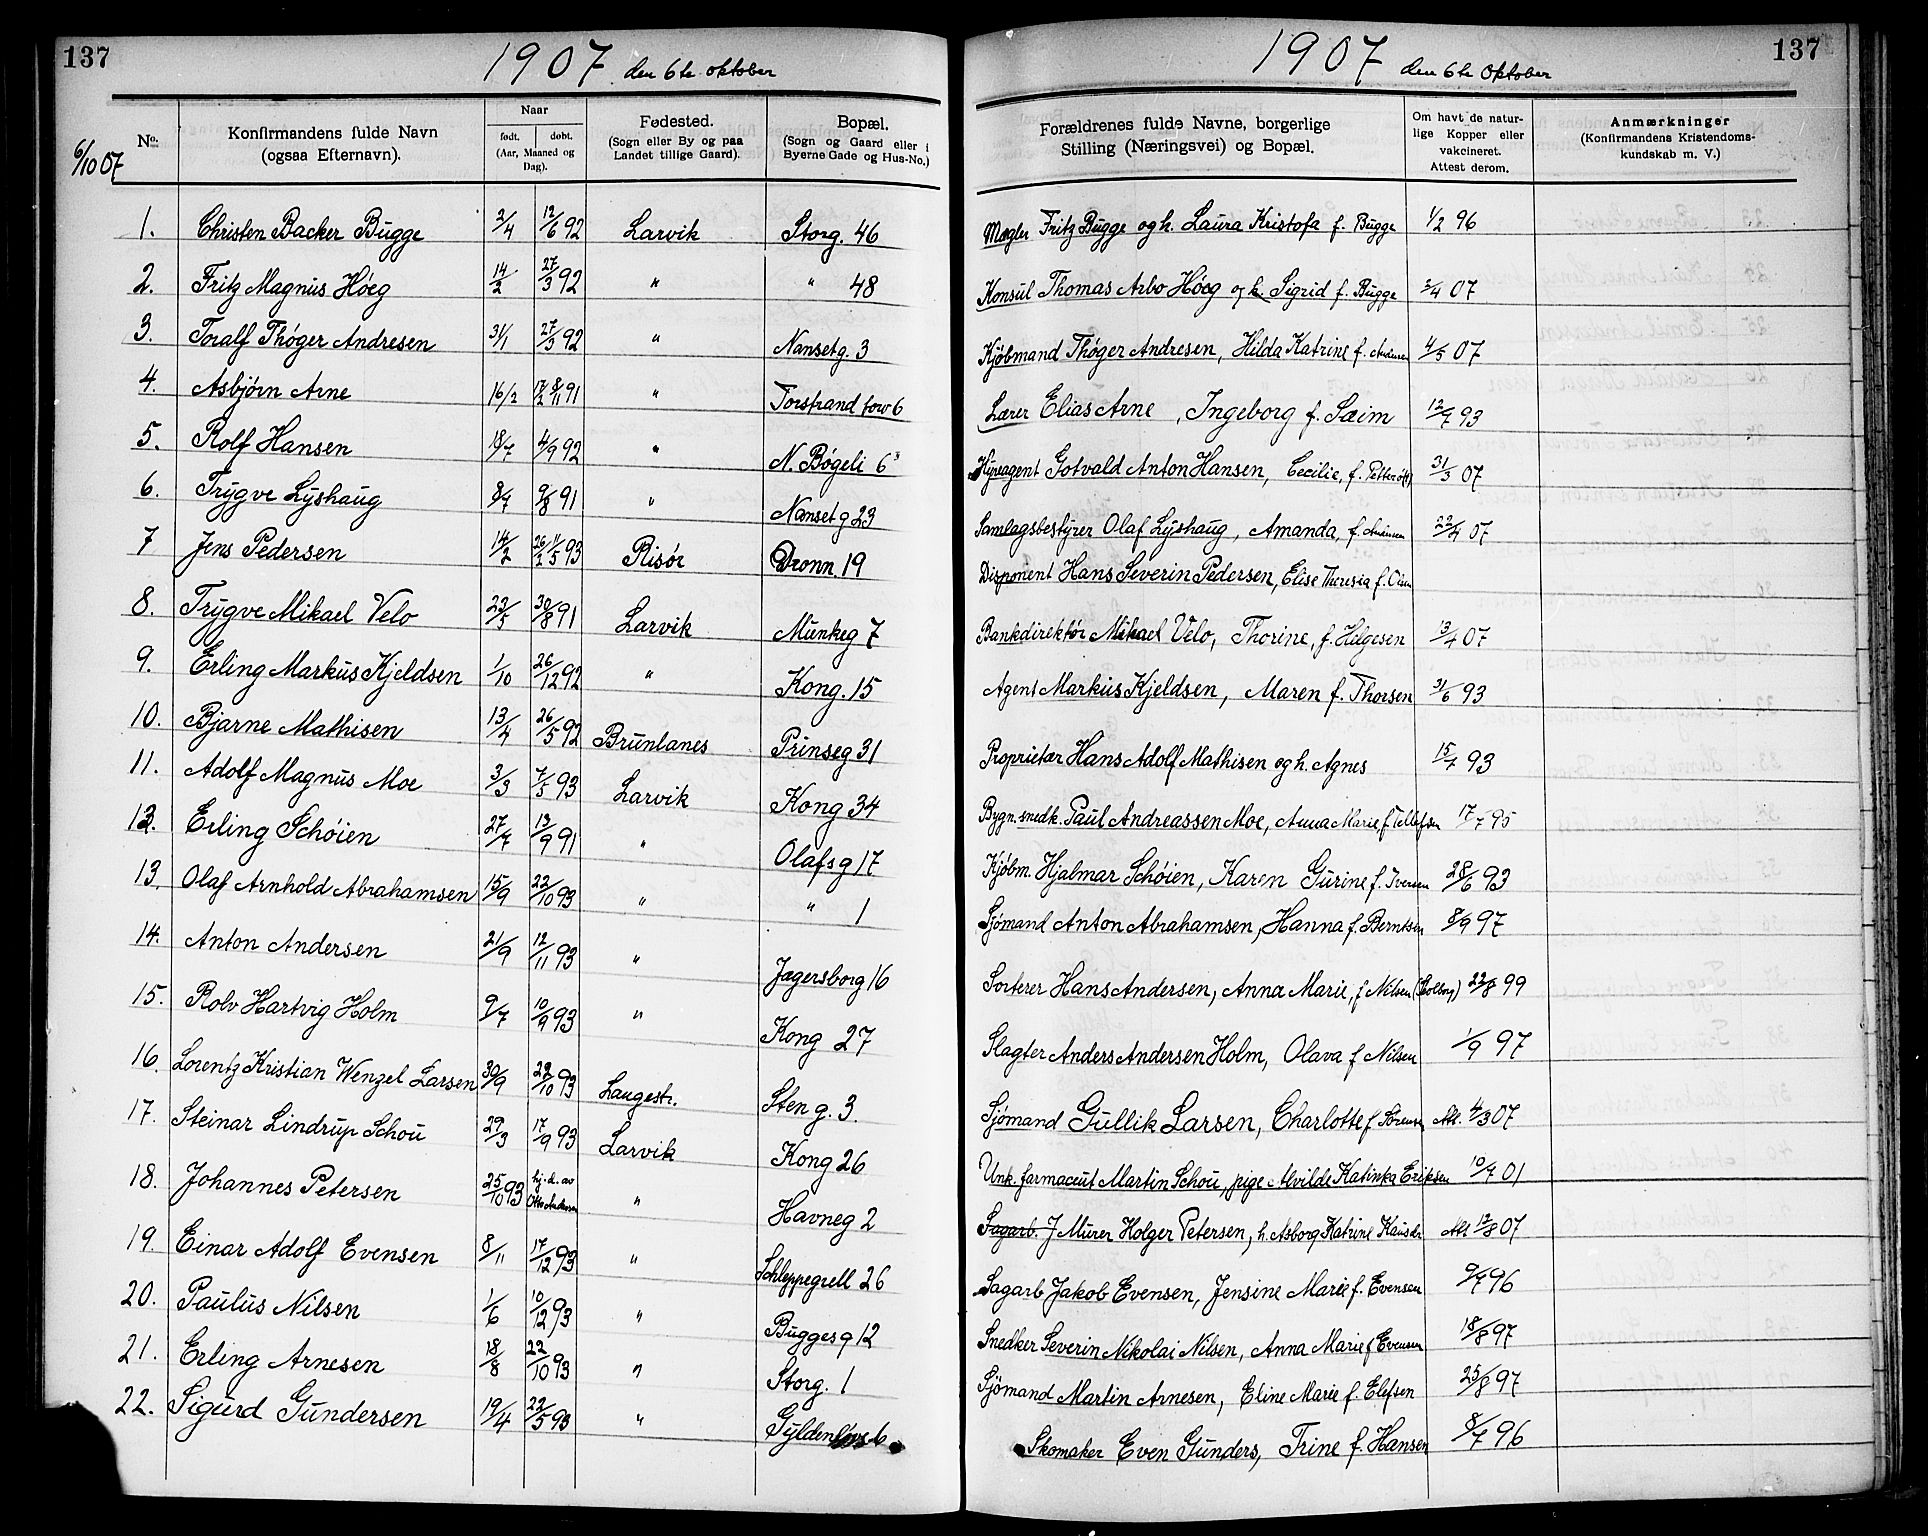 137
1907 den 6te oktober
6/10 07
No.
Konfirmandens fulde Navn
(ogsaa Efternavn).
Naar
født. døbt.
(Aar, Maaned og
Dag).
Fødested.
(Sogn eller By og paa
Landet tillige Gaard).
Bopæl.
(Sogn og Gaard eller i
Byerne Gade og Hus-No.)
1. Christen Backer Bugge 2/4 12/6 92 Larvik Storg. 46
2. Fritz Magnus Höeg 14/2 27/3 92 " " 48
3. Toralf Thøger Andresen 31/1 27/3 92 " Nansetg. 3
4. Asbjørn Arne 16/2 17/2 8/11 91 " Torstrand 6
5. Rolf Hansen 18/7 4/9 92 " N. Bøgeli 6
6. Trygve Lyshaug 8/7 9/8 91 " Nanset g 23
7 Jens Pedersen 14/2 26/2 11/5 93 Risör Dronn. 19
8. Trygve Mikael Velo 23/5 30/8 91 Larvik Munkeg 7
9. Erling Markus Kjeldsen 1/10 26/12 92 " Kong. 15
10. Bjarne Mathisen 13/4 26/5 92 Brunlanes Prinseg 31
11. Adolf Magnus Moe 3/3 7/5 93 Larvik Kong 34
12. Erling Schöien 27/7 13/9 91 " Olafsg 17
13. Olaf Arnhold Abrahamsen 15/9 22/10 93 " " 1
14. Anton Andersen 21/9 12/11 93 " Jagersborg 16
15. Rolv Hartvig Holm 9/7 10/9 93 " Kong 27
16. Lorentz Kristian Wenzel Larsen 30/9 22/10 93 Langestr. Sten g. 3.
17. Steinar Lindrup Schou 29/3 17/9 93 Larvik Kong 26
18. Johannes Petersen 25/10 93 hj. d. av Otto Andersen " Havneg 2
19. Einar Adolf Evensen 8/11 17/12 93 " Schleppegrell 26
20. Paulus Nilsen 1/6 10/12 93 " Bugges g 12
21. Erling Arnesen 18/8 22/10 93 " Storg. 1
22. Sigurd Gundersen 19/4 22/5 93 " Gyldenløvs 6
137
1907 den 6te Oktober
Forældrenes fulde Navne, borgerlige
Stilling (Næringsvei) og Bopæl.
Om havt de natur-
lige Kopper eller
vakcineret.
Attest derom.
Anmærkninger
(Konfirmandens Kristendoms-
kundskab m. V.)
Mægler Fritz Bugge og h. Laura Kristofa f. Bugge 1/2 96
Konsul Thomas Arbo Höeg og h. Sigrid f. Bugge 3/4 07
Kjöbmand Thöger Andresen, Hilda Katrine f. Andersen 4/5 07
Lærer Elias Arne, Ingeborg f. Sæim 12/7 93
Hyreagent Gotvald Anton Hansen, Cecilie, f. Petterö 31/3 07
Samlagsbestyrer Olaf Lyshaug, Amanda, f. Andersen 22/4 07
Disponent Hans Severin Pedersen, Elise Theresia f. Olsen
Bankdirektör Mikael Velo, Thorine, f. Helgesen 13/4 07
Agent Markus Kjeldsen, Maren f. Thorsen 31/6 93
Proprietær Hans Adolf Mathisen og h. Agnes 15/7 93
Bygn. snedk. Paul Andreassen Moe, Anna Marie, f Tellefsen 17/7 95
Kjöbm. Hjalmar Schöien, Karen Gurine f. Iversen 28/6 93
Sjömand Anton Abrahamsen, Hanna f. Berntsen 8/9 97
Sorterer Hans Andersen, Anna Marie, f Nilsen 22/8 99
Slagter Anders Andersen Holm, Olava f Nilsen 1/9 97
Sjömand Gullik Larsen, Charlotte f Sörensen Att. 4/3 07
Unk. farmaceut Martin Schou, pige Alvilde Katinka Eriksen 10/7 01
Sagarb. J Murer Holger Petersen, h. Asborg Katrine Att 12/8 07
Sagarb Jakob Evensen, Jensine Marie f. Evensen 9/7 96
Snedker Severin Nikolai Nilsen, Anna Marie f Evensen 18/8 97
Sjömand Martin Arnesen, Eline Marie f. Elefsen 25/8 97
Skomaker Even Gunders, Trine f. Hansen 8/7 96